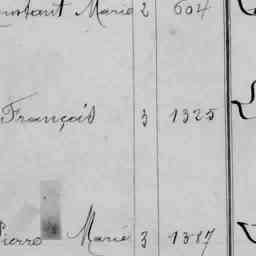 Constant Marie 2 604
François 3 1325
Pierre Marie 3 1387